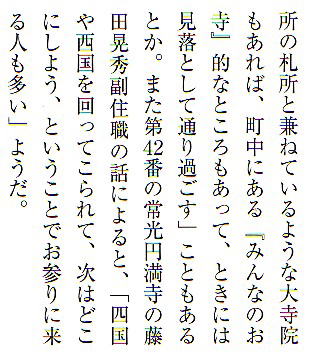 所の札所と兼ねているような大寺院
もあれば、町中にある『みんなのお
寺』的なところもあって、ときには
見落として通り過ごす」こともある
とか。また第42番の常光円満寺の藤
田晃秀副住職の話によると、「四国
や西国を回ってこられて、次はどこ
にしよう、ということでお参りに来
る人も多い」ようだ。